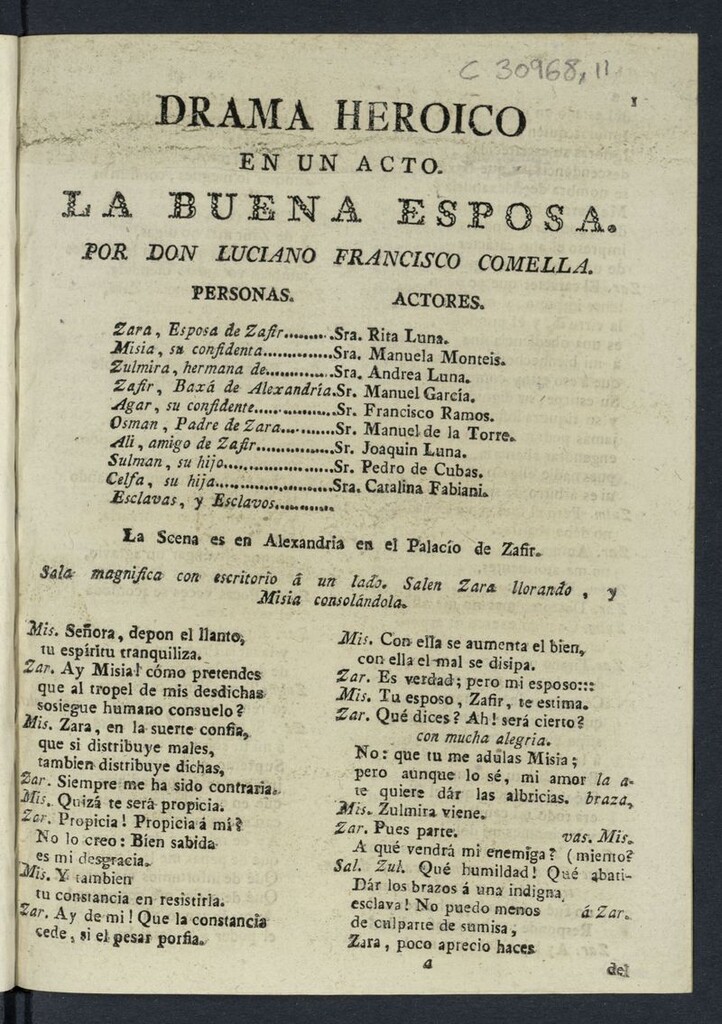 C 30968,11
1
DRAMA HEROICO
EN UN ACTO.
LA BUENA ESPOSA.
POR DON LUCIANO FRANCISCO COMELLA.
PERSONAS. ACTORES.
Zara, Esposa de Zafir..........Sra. Rita Luna.
Misia, su confidenta..............Sra. Manuela Monteis.
Zulmira, hermana de.............Sra. Andrea Luna.
Zafir, Baxá de Alexandría.Sr. Manuel García.
Agar, su confidente...............Sr. Francisco Ramos.
Osman, Padre de Zara..........Sr. Manuel de la Torre.
Ali, amigo de Zafir...............Sr. Joaquin Luna.
Sulman, su hijo....................Sr. Pedro de Cubas.
Celfa, su hija.......................Sra. Catalina Fabiani.
Esclavas, y Esclavos............
La Scena es en Alexandria en el Palacio de Zafir.
Sala magnifica con escritorio á un lado. Salen Zara llorando, y
Misia consolándola.
Mis. Señora, depon el llanto,
tu espíritu tranquiliza.
Zar. Ay Misia! cómo pretendes
que al tropel de mis desdichas
sosiegue humano consuelo?
Mis. Zara, en la suerte confia,
que si distribuye males,
tambien distribuye dichas,
Zar. Siempre me ha sido contraria.
Mis. Quizá te será propicia.
Zar. Propicia! Propicia á mí?
No lo creo: Bien sabida
es mi desgracia.
Mis. Y tambien
tu constancia en resistirla.
Zar. Ay de mi! Que la constancia
cede, si el pesar porfia.
Mis. Con ella se aumenta el bien,
con ella el mal se disipa.
Zar. Es verdad; pero mi esposo:::
Mis. Tu esposo, Zafir, te estima.
Zar. Qué dices? Ah! será cierto?
con mucha alegria.
No: que tu me adulas Misia;
pero aunque lo sé, mi amor la a-
te quiere dár las albricias. braza,
Mis. Zulmira viene.
Zar. Pues parte. vas. Mis.
A qué vendrá mi enemiga? (miento?
Sal. Zul. Qué humildad! Qué abati-
Dár los brazos á una indigna
esclava! No puedo menos á Zar.
de culparte de sumisa,
Zara, poco aprecio haces
a
del